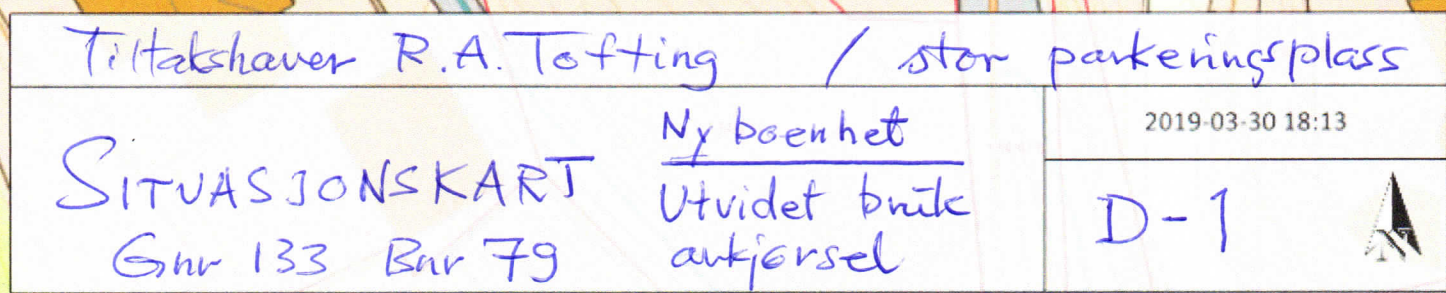 Tiltakshaver R.A. Tofting / stor parkeringsplass
SITUASJONSKART
Gnr 133 Bnr 79
Ny boenhet
Utvidet bruk
avkjørsel
2019-03-30 18:13
D-1
N